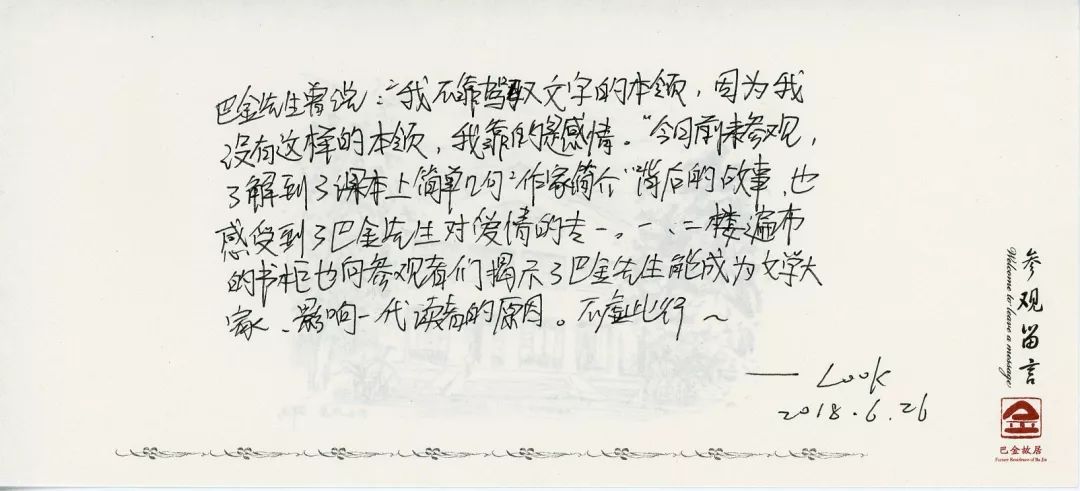 巴金先生曾说：“我不靠驾驭文字的本领，因为我
没有这样的本领，我靠的是感情。”今日前来参观，
了解到了课本上简单几句“作家简介”背后的故事，也
感受到了巴金先生对爱情的专一。一、二楼遍布
的书柜也向参观者们揭示了巴金先生能成为文学大
家、影响一代读者的原因。不虚此行～
—— Look
2018.6.26
参观留言
Welcome to leave a message
巴金故居
Former Residence of Ba Jin